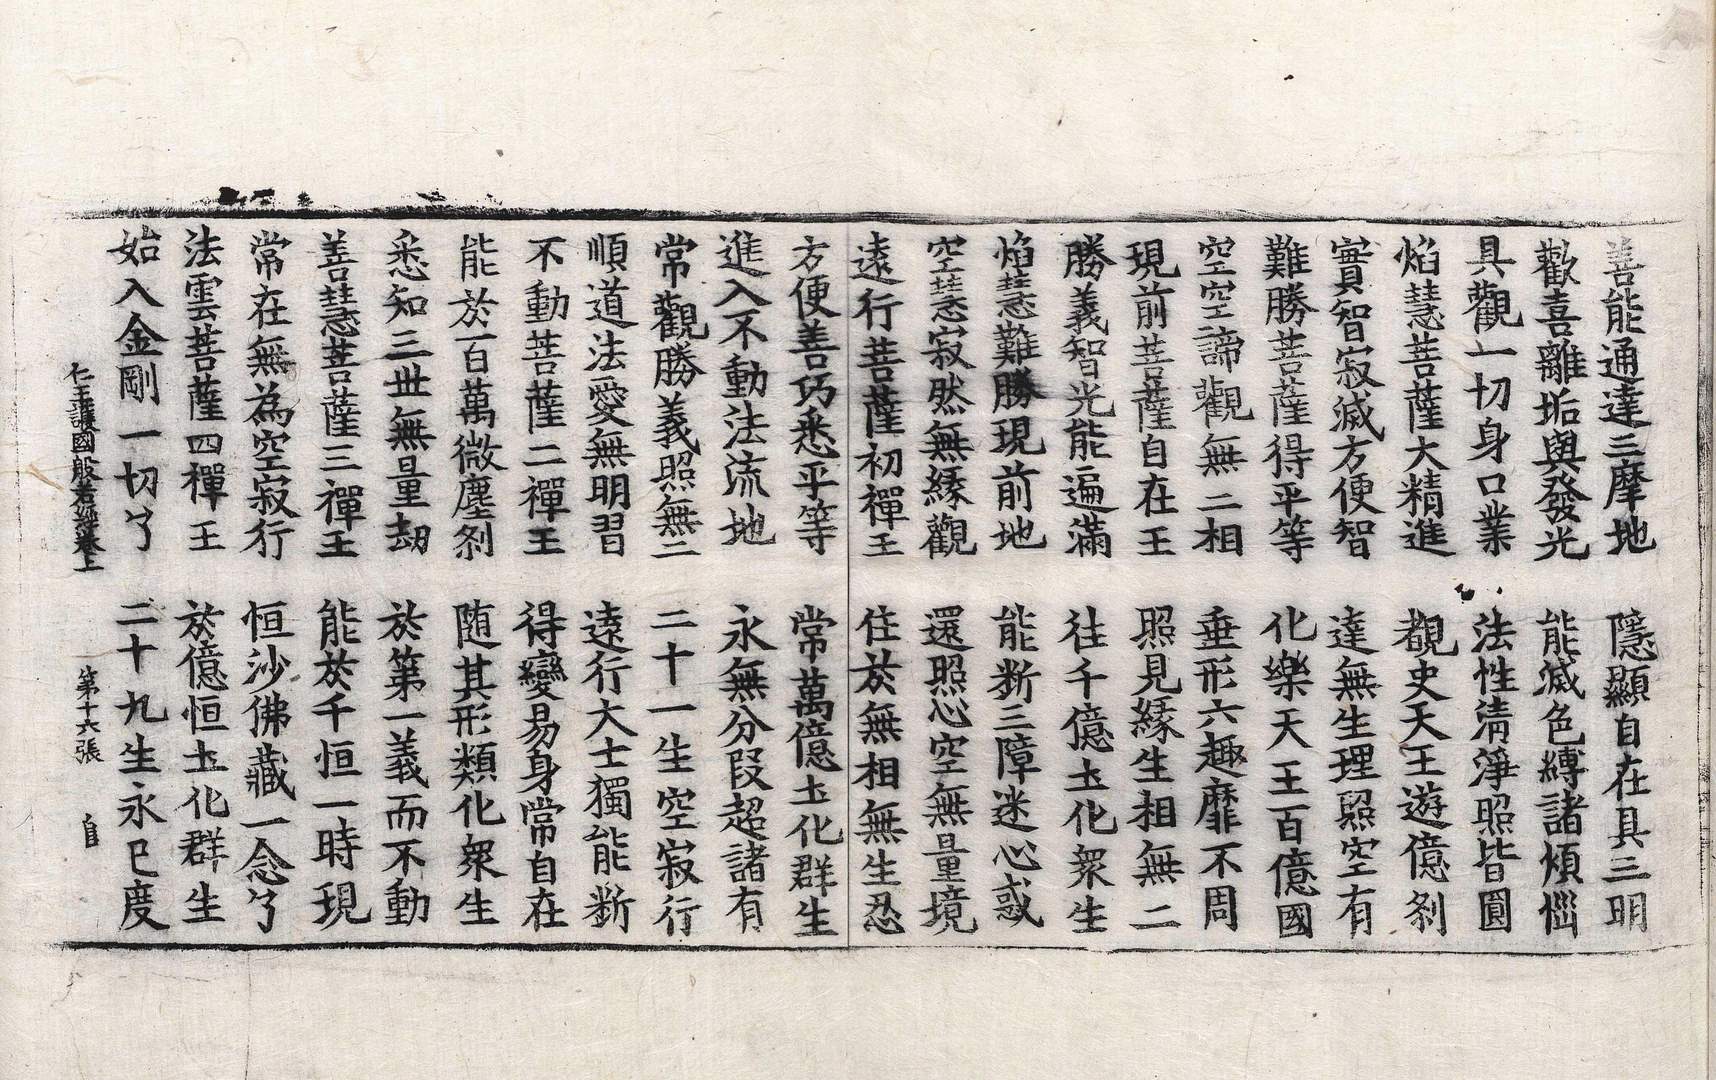 善能通達三摩地　隱顯自在具三明
歡喜離垢與發光　能滅色縛諸煩惱
具觀一切身口業　法性清淨照皆圓
焰慧菩薩大精進　覩史天王遊億刹
實智寂滅方便智　達無生理照空有
難勝菩薩得平等　化樂天王百億國
空空諦觀無二相　垂形六趣靡不周
現前菩薩自在王　照見緣生相無二
勝義智光能遍滿　往千億土化衆生
焰慧難勝現前地　能斷三障迷心惑
空慧寂然無緣觀　還照心空無量境
遠行菩薩初禪王　住於無相無生忍
方便善巧悉平等　常萬億土化群生
進入不動法流地　永無分段超諸有
常觀勝義照無二　二十一生空寂行
順道法愛無明習　遠行大士獨能斷
不動菩薩二禪王　得變易身常自在
能於百萬微塵刹　随其形類化衆生
悉知三世無量劫　於第一義而不動
善慧菩薩三禪王　能於千恒一時現
常在無為空寂行　恒沙佛藏一念了
法雲菩薩四禪王　於億恒土化群生
始入金剛一切了　二十九生永已度
仁王護國般若經卷上　第十六張　自